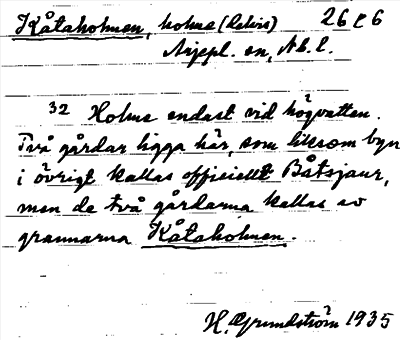 Kåtaholmen, holme (delvis) 26 C 6
Arjepl. sn, Nb. l.
32 Holme endast vid högvatten.
Två gårdar ligga här, som liksom byn
i övrigt kallas officiellt Båtsjaur,
men de två gårdarna kallas av
grannarna Kåtaholmen.
H. Grundström 1935